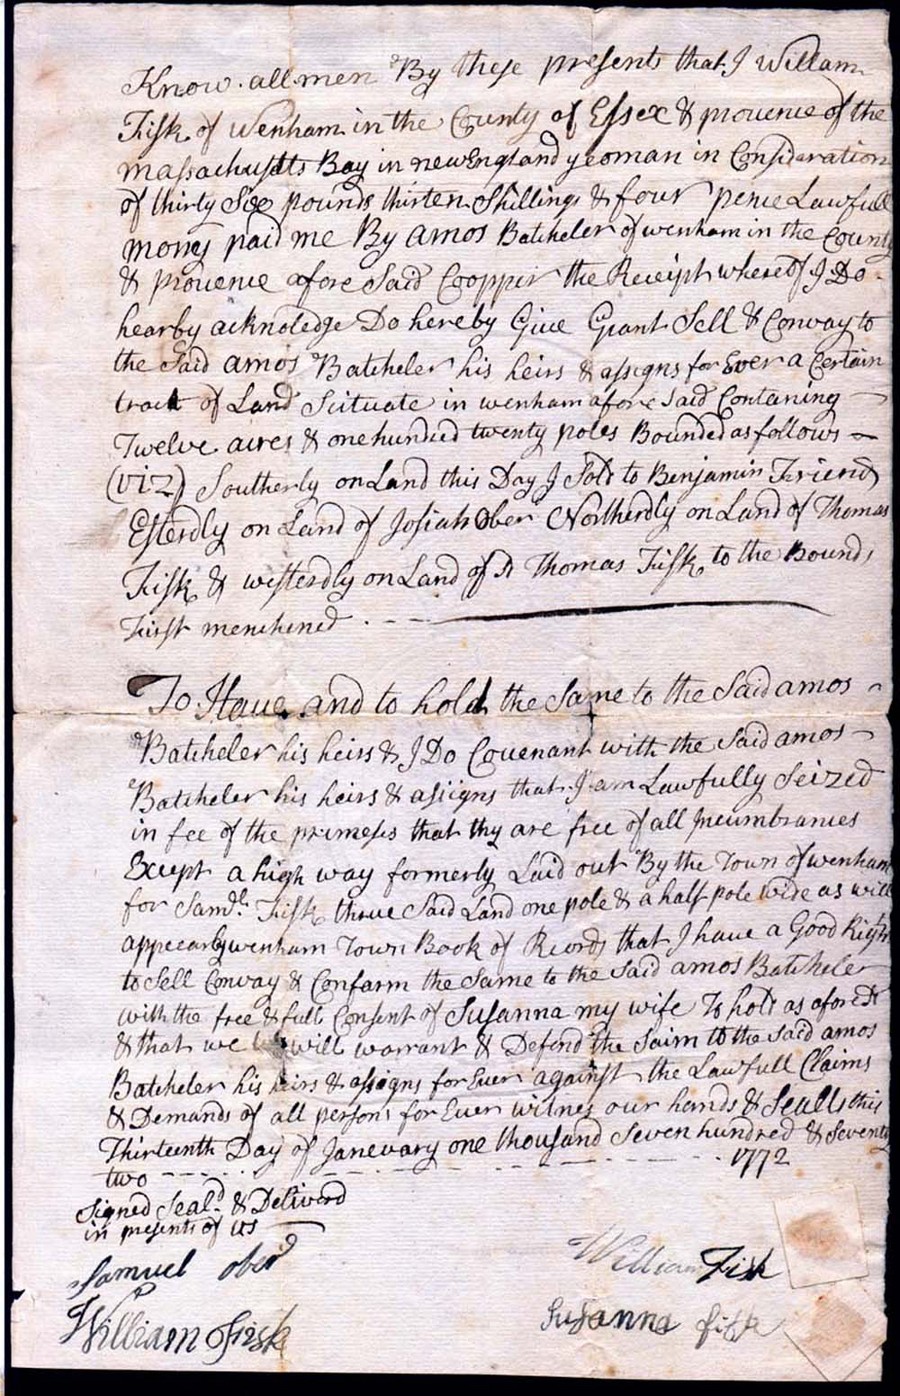 Know all men By these presents that I William
Fisk of Wenham in the County of Essex & prouence of the
massachusetts Bay in newEngland yeoman in Consideration
of thirty Six pounds thirten Shillings & four pence Lawfull
mony paid me By amos Batcheler of wenham in the County
& prouence afore Said Coopper the Receipt whereof I Do
hearby acknoledge Do hereby Giue Grant Sell & Convay to
the Said amos Batcheler his heirs & assigns for Ever a Certain
tract of Land Scituate in wenham afore Said Contaning
Twelve acres & one hundred twenty poles Bounded as follows
(viz) Southerly on Land this Day I Sold to Benjamin Friend
Esterdly on Land of Josiah Ober Northerdly on Land of Thomas
Fisk & westerdly on Land of Thomas Fisk to the Bounds
First menchined
To Haue and to hold the Same to the Said amos
Batcheler his heirs & I Do Couenant with the Said amos
Batcheler his heirs & assigns that I am Lawfully Seized
in fee of the premeses that thy are free of all Incumbrances
Except a high way formerly Laid out By the Town of wenham
for Samll. Fisk throue Said Land one pole & a half pole wide as will
appear by wenham Town Book of Records that I have a Good Right
to Sell Convay & Confarm the Same to the Said amos Batcheler
with the free & full Consent of Susanna my wife To hold as afored
& that we will warrant & Defend the Saim to the Said amos
Batcheler his heirs & assigns for Ever against the Lawfull Claims
& Demands of all persons for Euer witnes our hands & Sealls this
Thirteenth Day of Janeuary one thousand Seven hundred & Seventy
two 1772
Signed Seald & Deliverd
in presents of us
Samuel ober
William Fisk
William Fisk
Susanna fisk